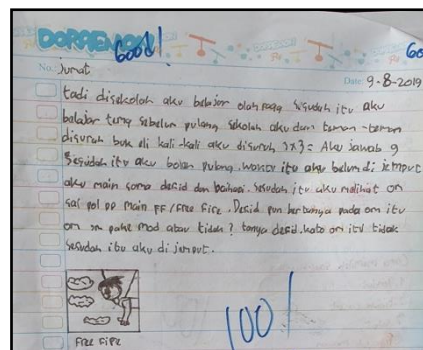 DORAEMON
Good!
Go
No. Jumat
Date: 9-8-2019
tadi disekolah aku belajar olah raga sisudah itu aku
belajar tema sebelum pulang sekolah aku dan teman-teman
disuruh buk eli kali-kali aku disuruh 3x3= Aku jawab 9
sesudah itu aku boleh pulang. waktu itu aku belum di jemput
aku main sama desid dan baihaqi. sesudah itu aku melihat om
sat pol pp main FF/free fire. Desid pun bertanya pada om itu
om pake mod atau tidak? tanya desid. kata om itu tidak
sesudah itu aku di jemput.
Free Fire
100